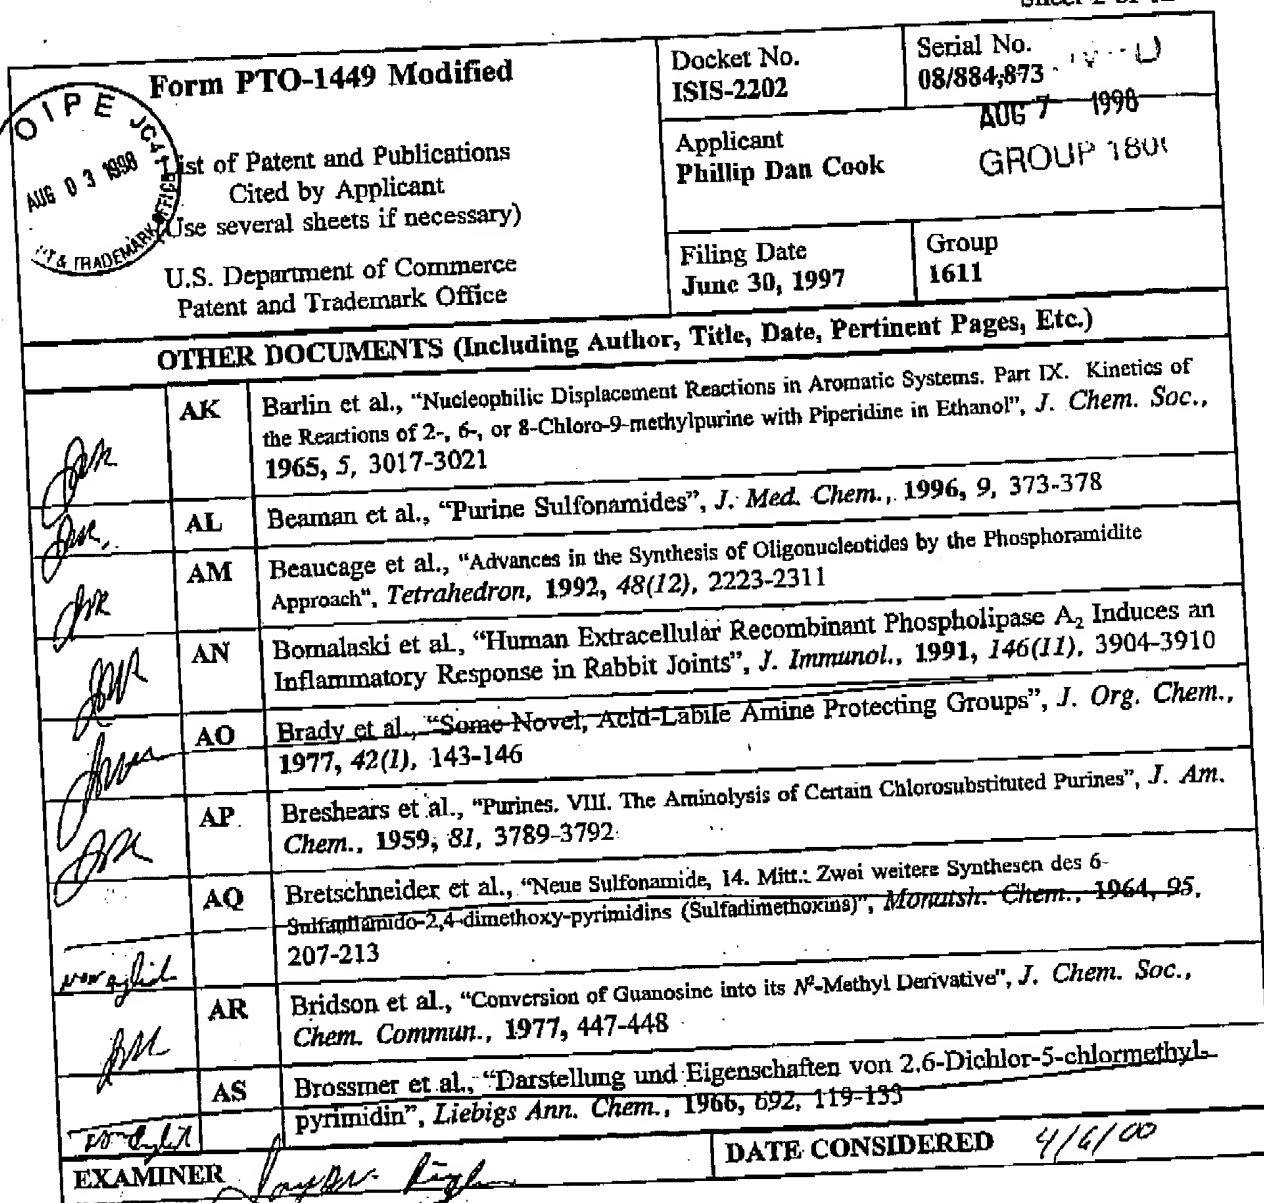 Form PTO-1449 Modified
List of Patent and Publications
Cited by Applicant
(Use several sheets if necessary)
U.S. Department of Commerce
Patent and Trademark Office
OIPE JC41
AUG 03 1998
& TRADEMARK OFFICE
Docket No.
ISIS-2202
Serial No.
08/884,873
AUG 7 1998
GROUP 180
Applicant
Phillip Dan Cook
Filing Date
June 30, 1997
Group
1611
OTHER DOCUMENTS (Including Author, Title, Date, Pertinent Pages, Etc.)
AK
Barlin et al., “Nucleophilic Displacement Reactions in Aromatic Systems. Part IX. Kinetics of
the Reactions of 2-, 6-, or 8-Chloro-9-methylpurine with Piperidine in Ethanol”, J. Chem. Soc.,
1965, 5, 3017-3021
AL
Beaman et al., “Purine Sulfonamides”, J. Med. Chem., 1996, 9, 373-378
AM
Beaucage et al., “Advances in the Synthesis of Oligonucleotides by the Phosphoramidite
Approach”, Tetrahedron, 1992, 48(12), 2223-2311
AN
Bomalaski et al., “Human Extracellular Recombinant Phospholipase A2 Induces an
Inflammatory Response in Rabbit Joints”, J. Immunol., 1991, 146(11), 3904-3910
AO
Brady et al., “Some Novel, Acid-Labile Amine Protecting Groups”, J. Org. Chem.,
1977, 42(1), 143-146
AP
Breshears et al., “Purines. VIII. The Aminolysis of Certain Chlorosubstituted Purines”, J. Am.
Chem., 1959, 81, 3789-3792
AQ
Bretschneider et al., “Neue Sulfonamide, 14. Mitt.: Zwei weitere Synthesen des 6-
Sulfanilamido-2,4-dimethoxy-pyrimidins (Sulfadimethoxins)”, Monatsh. Chem., 1964, 95,
207-213
AR
Bridson et al., “Conversion of Guanosine into its N²-Methyl Derivative”, J. Chem. Soc.,
Chem. Commun., 1977, 447-448
AS
Brossmer et al., “Darstellung und Eigenschaften von 2,6-Dichlor-5-chlormethyl-
pyrimidin”, Liebigs Ann. Chem., 1966, 692, 119-133
EXAMINER
DATE CONSIDERED 4/6/00